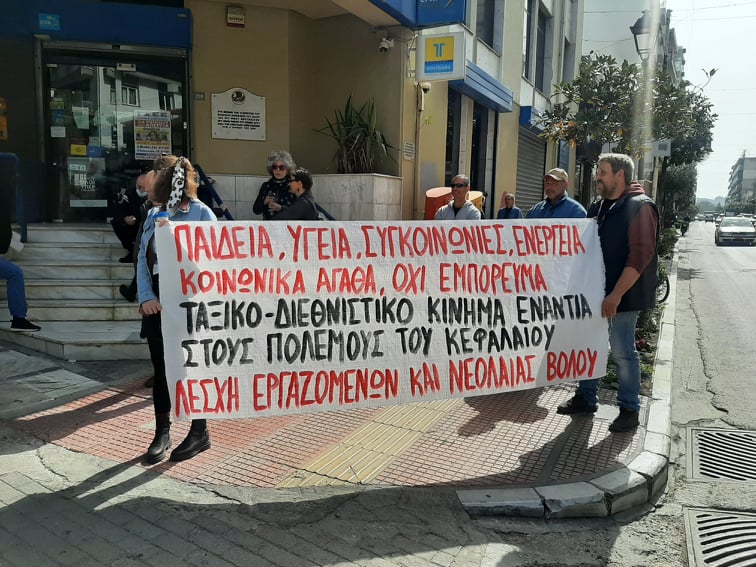 ΠΑΙΔΕΙΑ, ΥΓΕΙΑ, ΣΥΓΚΟΙΝΩΝΙΕΣ, ΕΝΕΡΓΕΙΑ
ΚΟΙΝΩΝΙΚΑ ΑΓΑΘΑ, ΟΧΙ ΕΜΠΟΡΕΥΜΑ
ΤΑΞΙΚΟ-ΔΙΕΘΝΙΣΤΙΚΟ ΚΙΝΗΜΑ ΕΝΑΝΤΙΑ
ΣΤΟΥΣ ΠΟΛΕΜΟΥΣ ΤΟΥ ΚΕΦΑΛΑΙΟΥ
ΛΕΣΧΗ ΕΡΓΑΖΟΜΕΝΩΝ ΚΑΙ ΝΕΟΛΑΙΑΣ ΒΟΛΟΥ